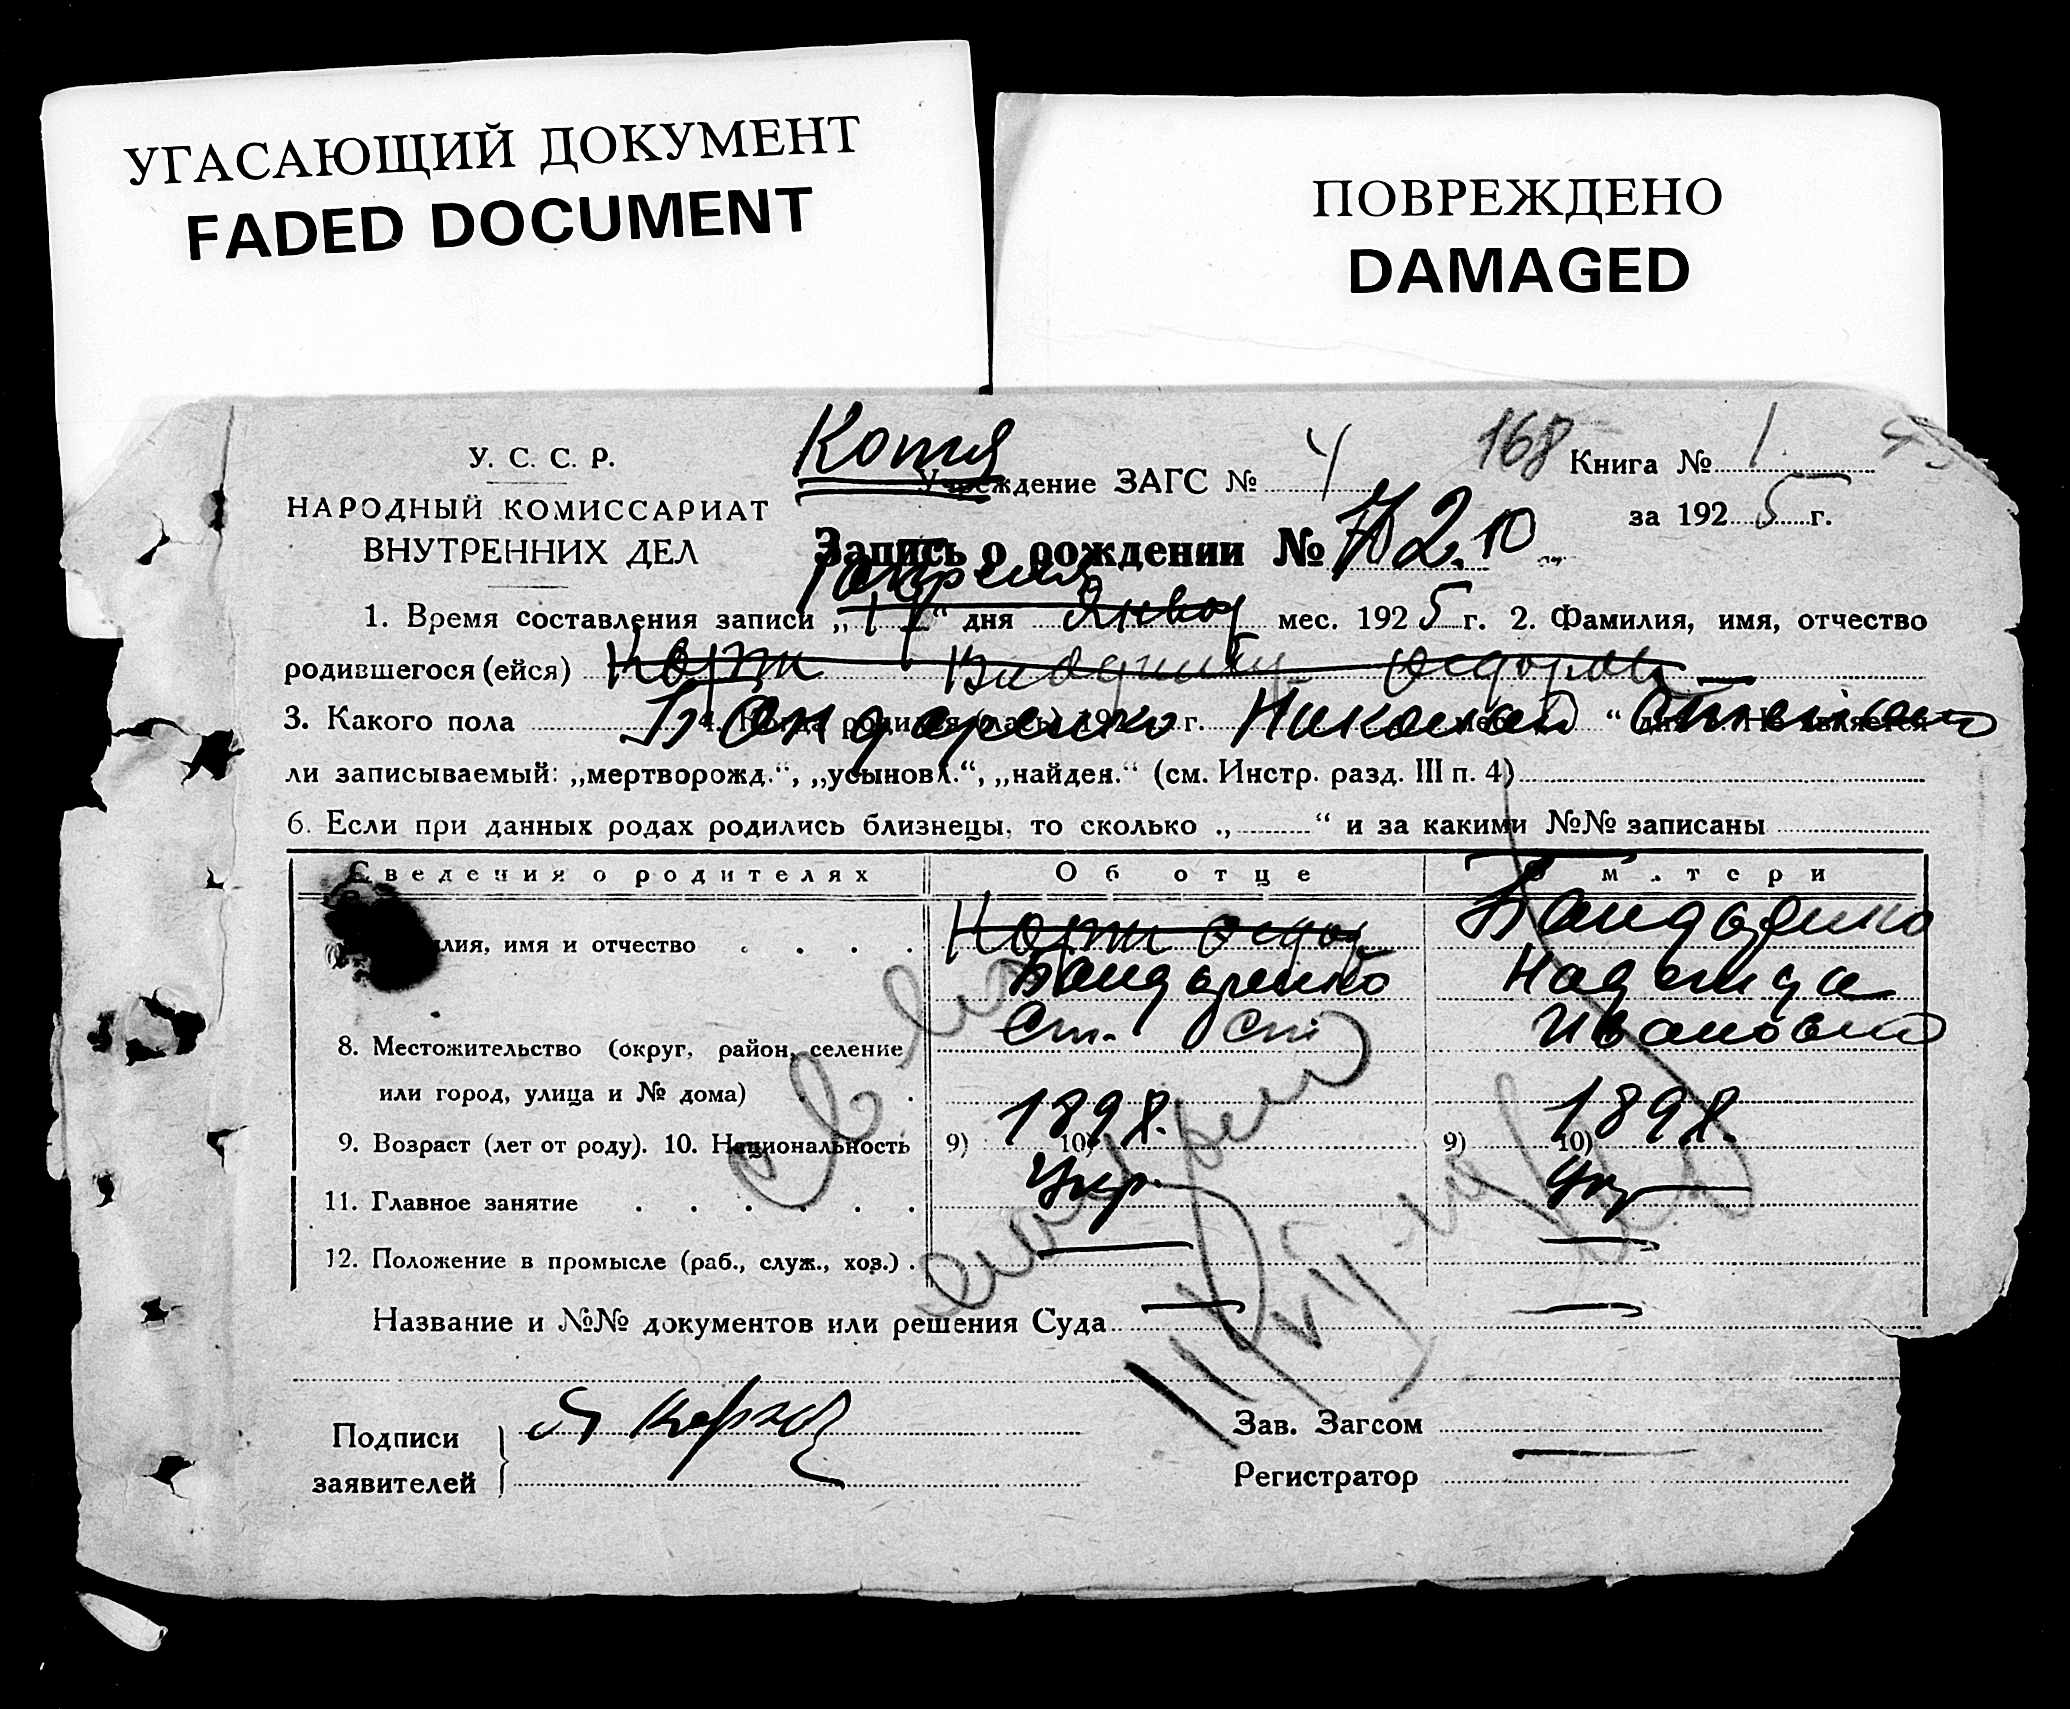 УГАСАЮЩИЙ ДОКУМЕНТ
FADED DOCUMENT
ПОВРЕЖДЕНО
DAMAGED
У. С. С. Р.
НАРОДНЫЙ КОМИССАРИАТ
ВНУТРЕННИХ ДЕЛ
Копия
Учреждение ЗАГС № 4
168 Книга № 1
за 1925 г.
Запись о рождении №
апреля
1. Время составления записи „ “ дня Января мес. 1925 г. 2. Фамилия, имя, отчество
родившегося (ейся) Корж Владимир Федоров
3. Какого пола 4. Когда родился (лась) 192 г. мес. “ дня
Бондаренко Николай
ли записываемый: „мертворожд.“, „усыновл.“, „найден.“ (см. Инстр. разд. III п. 4)
6. Если при данных родах родились близнецы, то сколько „ “ и за какими №№ записаны
Сведения о родителях Об отце О матери
илия, имя и отчество Корж Федор Бондаренко
Бондаренко Надежда
Ст. Ст. Ивановна
8. Местожительство (округ, район, селение
или город, улица и № дома)
9. Возраст (лет от роду). 10. Национальность 9) 1898. 10) 9) 1898. 10)
Укр. Укр
11. Главное занятие
12. Положение в промысле (раб., служ., хоз.)
Название и №№ документов или решения Суда
Подписи
заявителей
Зав. Загсом
Регистратор